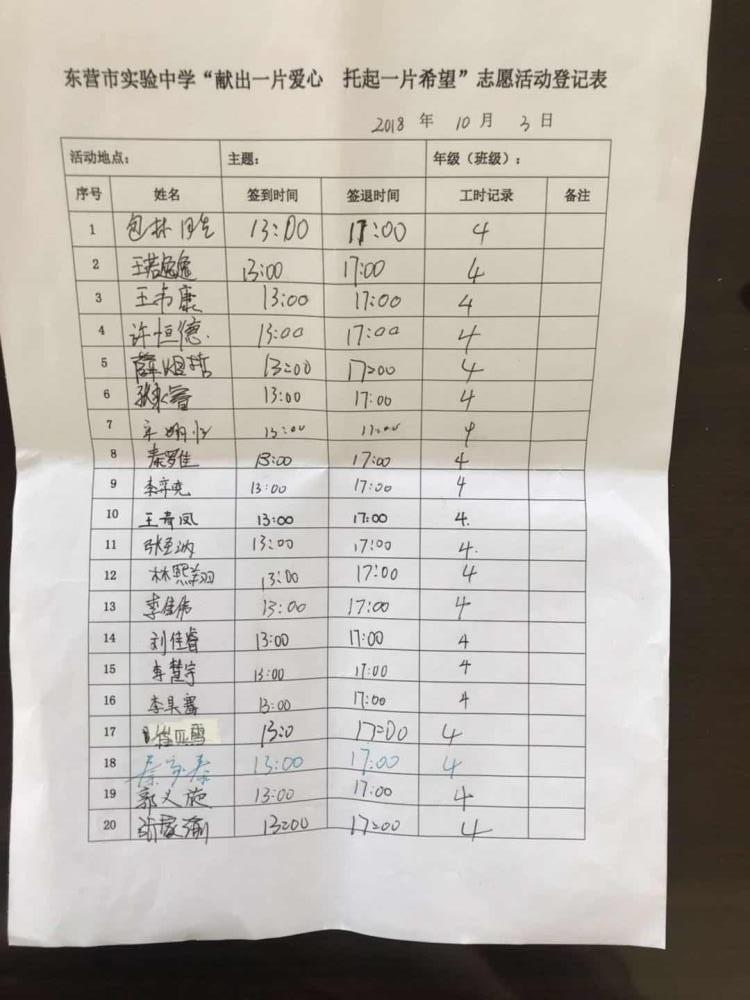 东营市实验中学“献出一片爱心 托起一片希望”志愿活动登记表
2018 年 10 月 3 日
活动地点： 主题： 年级（班级）：
序号 姓名 签到时间 签退时间 工时记录 备注
1 13:00 17:00 4
2 13:00 17:00 4
3 王韦康 13:00 17:00 4
4 许恒德 13:00 17:00 4
5 13:00 17:00 4
6 13:00 17:00 4
7 13:00 17:00 4
8 秦罗佳 13:00 17:00 4
9 李弈尧 13:00 17:00 4
10 王奇凤 13:00 17:00 4
11 13:00 17:00 4
12 林熙翔 13:00 17:00 4
13 李佳伟 13:00 17:00 4
14 刘佳睿 13:00 17:00 4
15 李慧宇 13:00 17:00 4
16 李昊 13:00 17:00 4
17 13:0 17:00 4
18 13:00 17:00 4
19 郭义施 13:00 17:00 4
20 13:00 17:00 4